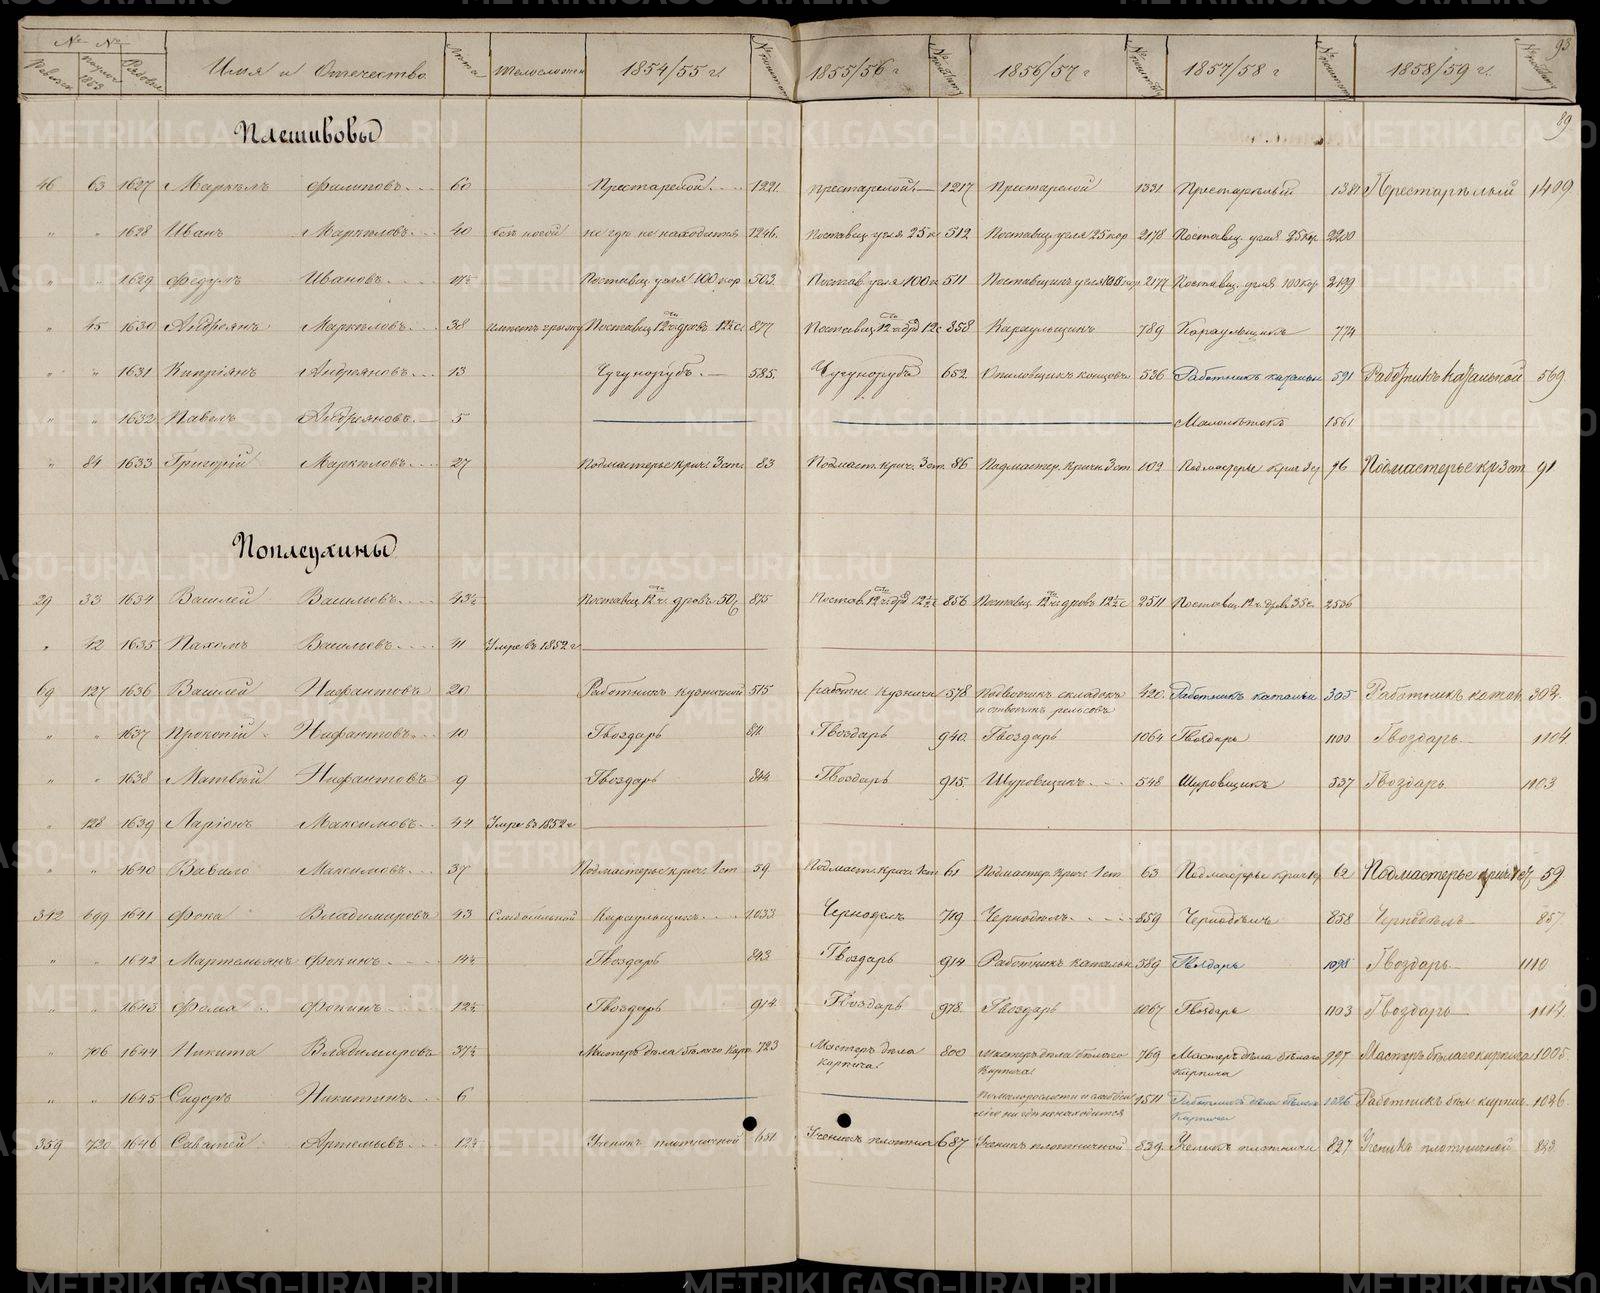 93
№ №
Ревизск. | 1853 | Имя и Отчество | Лѣта | Тѣлосложен. | 1854/55 г. | 1855/56 г | 1856/57 г | 1857/58 г | 1858/59 г.
89
Плешивовы
46 63 1627 Маркелъ Филиповъ 60 Престарелой 1221. престарелой 1217 Престарелой 1331 Престарѣлый 1381 Престарѣлый 1409
" " 1628 Иванъ Маркеловъ 40 безъ ногой не гдѣ не находится 1246. Поставщ. угля 25 к 512 Поставщ. угля 25 кор 2178 Поставщ. угля 25 кор 2200
" " 1629 Федулъ Ивановъ 17½ Поставщ угля 100 кор 503. Постав. угля 100 к 511 Поставщикъ угля 100 кор 2177 Поставщ. угля 100 кор 2199
" 45 1630 Андреянъ Маркеловъ 38 имѣетъ грыжу Поставщ 12 ч. дровъ 12½ с 877 Поставщ 12 ч. др 12 с 858 Караульщикъ 789 Караульщикъ 774
" " 1631 Кипріянъ Андреяновъ 13 Чугунорубъ 585. Чугунорубъ 652 Опиловщикъ концовъ 536 Работникъ катальн 591 Работникъ катальной 569
" " 1632 Павелъ Андреяновъ 5 Малолѣтокъ 1561
" 84 1633 Григорій Маркеловъ 27 Подмастерье крич. 3 ст. 83 Подмаст. крич. 3 ст. 86 Подмастер. кричн 3 ст 102 Подмастерье крич 3 с 96 Подмастерье кр 3 ст 91
Поплеухины
29 33 1634 Василей Васильевъ 43½ Поставщ 12 ч. дровъ 50 875 Постав. 12 ч. др 12½ с 856 Поставщ. 12 ч. дровъ 12½ с 2511 Поставщ. 12 ч. дровъ 35 с. 2536
" 42 1635 Пахомъ Васильевъ 41 Умре въ 1852 г
69 127 1636 Василей Нифантовъ 20 Работникъ кузничной 515 работн. кузничн 578 Подвозчикъ складокъ 420. Работникъ катальн 305 Работникъ катал. 302.
и отвозчик рельсовъ
" " 1637 Прокопій Нифантовъ 10 Гвоздарь 811 Гвоздарь 940. Гвоздарь 1064 Гвоздарь 1100 Гвоздарь 1104
" " 1638 Матвѣй Нифантовъ 9 Гвоздарь 844 Гвоздарь 915. Шуровщикъ 548 Шуровщикъ 537 Гвоздарь 1103
" 128 1639 Ларіонъ Максимовъ 44 Умре въ 1852 г
" " 1640 Вавило Максимовъ 37 Подмастерье крич. 1 ст 59 Подмаст. крич. 1 ст 61 Подмастер. крич. 1 ст 63 Подмастерье крич 1 с 62 Подмастерье крич 1 ст 59
342 699 1641 Фока Владимировъ 43 Слабосильной Караульщикъ 1033 Черноделъ 719 Чернодѣлъ 859 Чернодѣлъ 858 Чернодѣлъ 857
" " 1642 Мартемьянъ Фокинъ 14½ Гвоздарь 843 Гвоздарь 914 Работникъ катальн 589 Гвоздарь 1098 Гвоздарь 1110
" " 1643 Фома Фокинъ 12½ Гвоздарь 914 Гвоздарь 978. Гвоздарь 1067 Гвоздарь 1103 Гвоздарь 1114.
" 706 1644 Никита Владимировъ 37½ Мастеръ дѣла бѣлаго кирп. 723 Мастеръ дѣла 800 мастеръ дѣла бѣлаго 769 Мастеръ дѣла бѣлаго 997 Мастеръ бѣлаго кирпича 1005.
кирпича кирпича кирпича
" " 1645 Сидоръ Никитинъ 6 По малорослости и слабос 1511 Работникъ дѣла бѣлаго 1026 Работникъ бѣл. кирпич. 1026.
ни гдѣ не находится кирпича
359 720 1646 Саватей Артемьевъ 12½ Ученикъ плотничной 651 Ученикъ плотнич 687 Ученикъ плотничной 839. Ученикъ плотничн 827 Ученикъ плотничной 823.